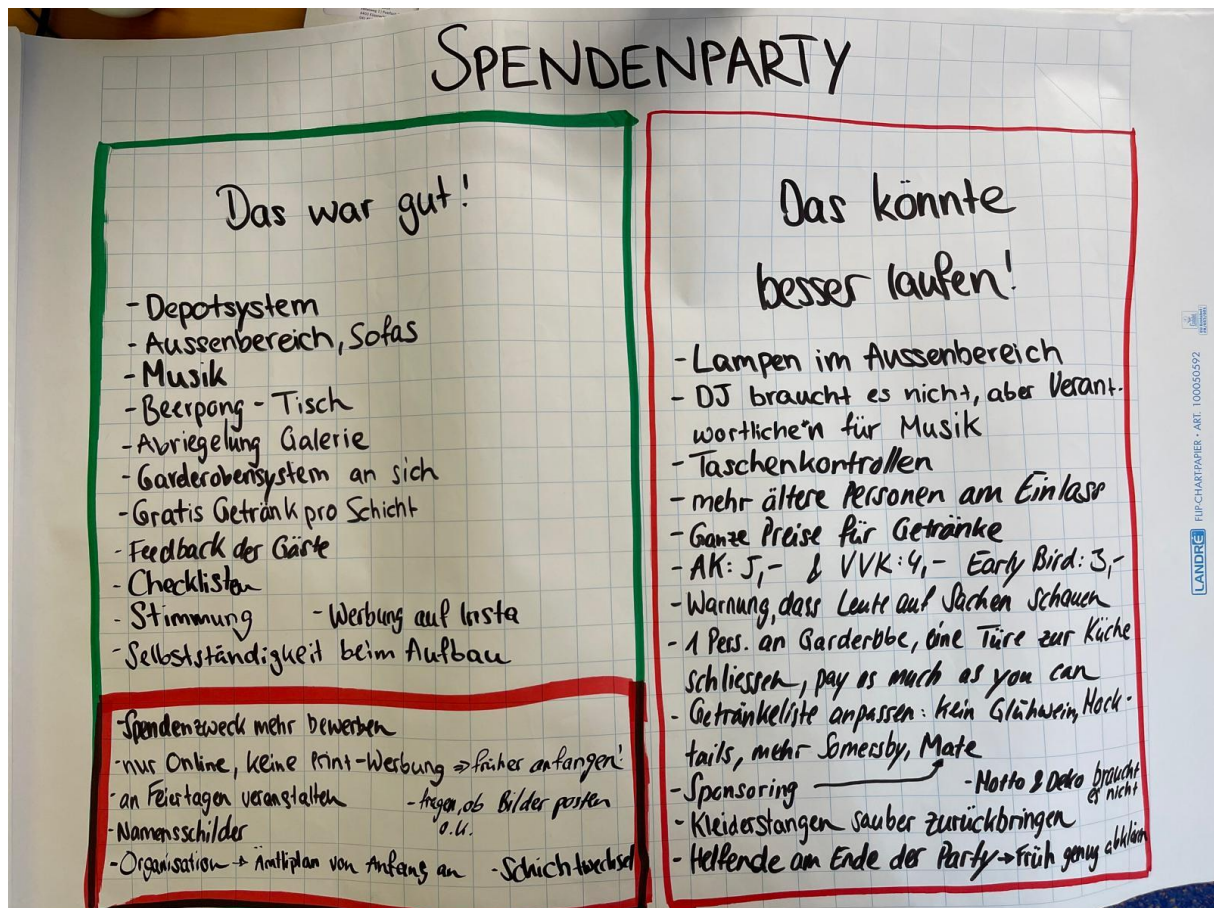 SPENDENPARTY
Das war gut!
- Depotsystem
- Aussenbereich, Sofas
- Musik
- Beerpong - Tisch
- Abriegelung Galerie
- Garderobensystem an sich
- Gratis Getränk pro Schicht
- Feedback der Gäste
- Checklisten
- Stimmung - Werbung auf Insta
- Selbstständigkeit beim Aufbau
- Spendenzweck mehr bewerben
- nur Online, keine Print-Werbung ⇒ früher anfangen!
- an Feiertagen veranstalten - fragen, ob Bilder posten
o.u.
- Namensschilder
- Organisation → Ämtliplan von Anfang an - Schichtwechsel
Das könnte
besser laufen!
- Lampen im Aussenbereich
- DJ braucht es nicht, aber Verant-
wortliche*n für Musik
- Taschenkontrollen
- mehr ältere Personen am Einlass
- Ganze Preise für Getränke
- AK: 5,- & VVK: 4,- Early Bird: 3,-
- Warnung, dass Leute auf Sachen schauen
- 1 Pers. an Garderobe, eine Türe zur Küche
schliessen, pay as much as you can
- Getränkeliste anpassen: kein Glühwein, Mock-
tails, mehr Somersby, Mate
- Sponsoring - Motto & Deko braucht
es nicht
- Kleiderstangen sauber zurückbringen
- Helfende am Ende der Party → Früh genug abklären
LANDRÉ FLIP-CHART-PAPIER • ART. 100050592